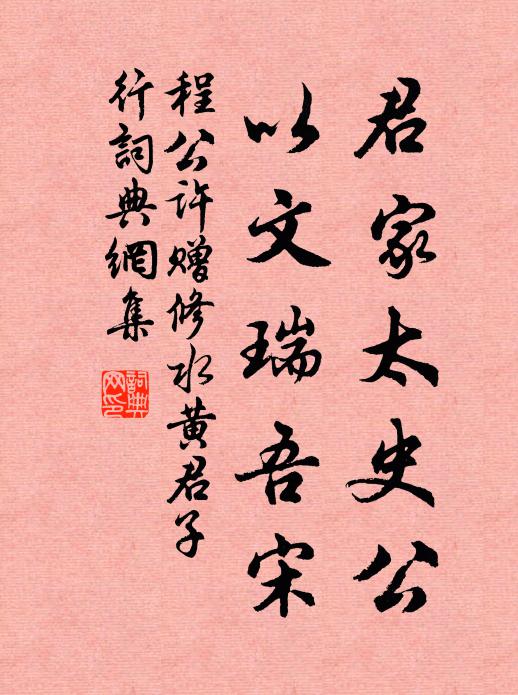 君家太史公
以文瑞吾宋
程公许赠修水黄君子
行詞典網集
詞典
网印